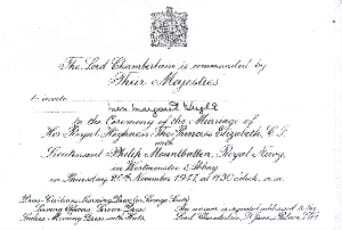 The Lord Chamberlain is commanded by
Their Majesties
to invite
Mrs Margaret
to the Ceremony of the Marriage of
Her Royal Highness The Princess Elizabeth, C.I.
with
Lieutenant Philip Mountbatten, Royal Navy,
in Westminster Abbey
on Thursday, 20th November, 1947, at 11.30 o'clock, a.m.
Dress: Civilians, Morning Dress or Lounge Suits
Serving Officers, Service Dress
Ladies, Morning Dress with Hats
An answer is requested addressed to the
Lord Chamberlain, St James's Palace, S.W.1